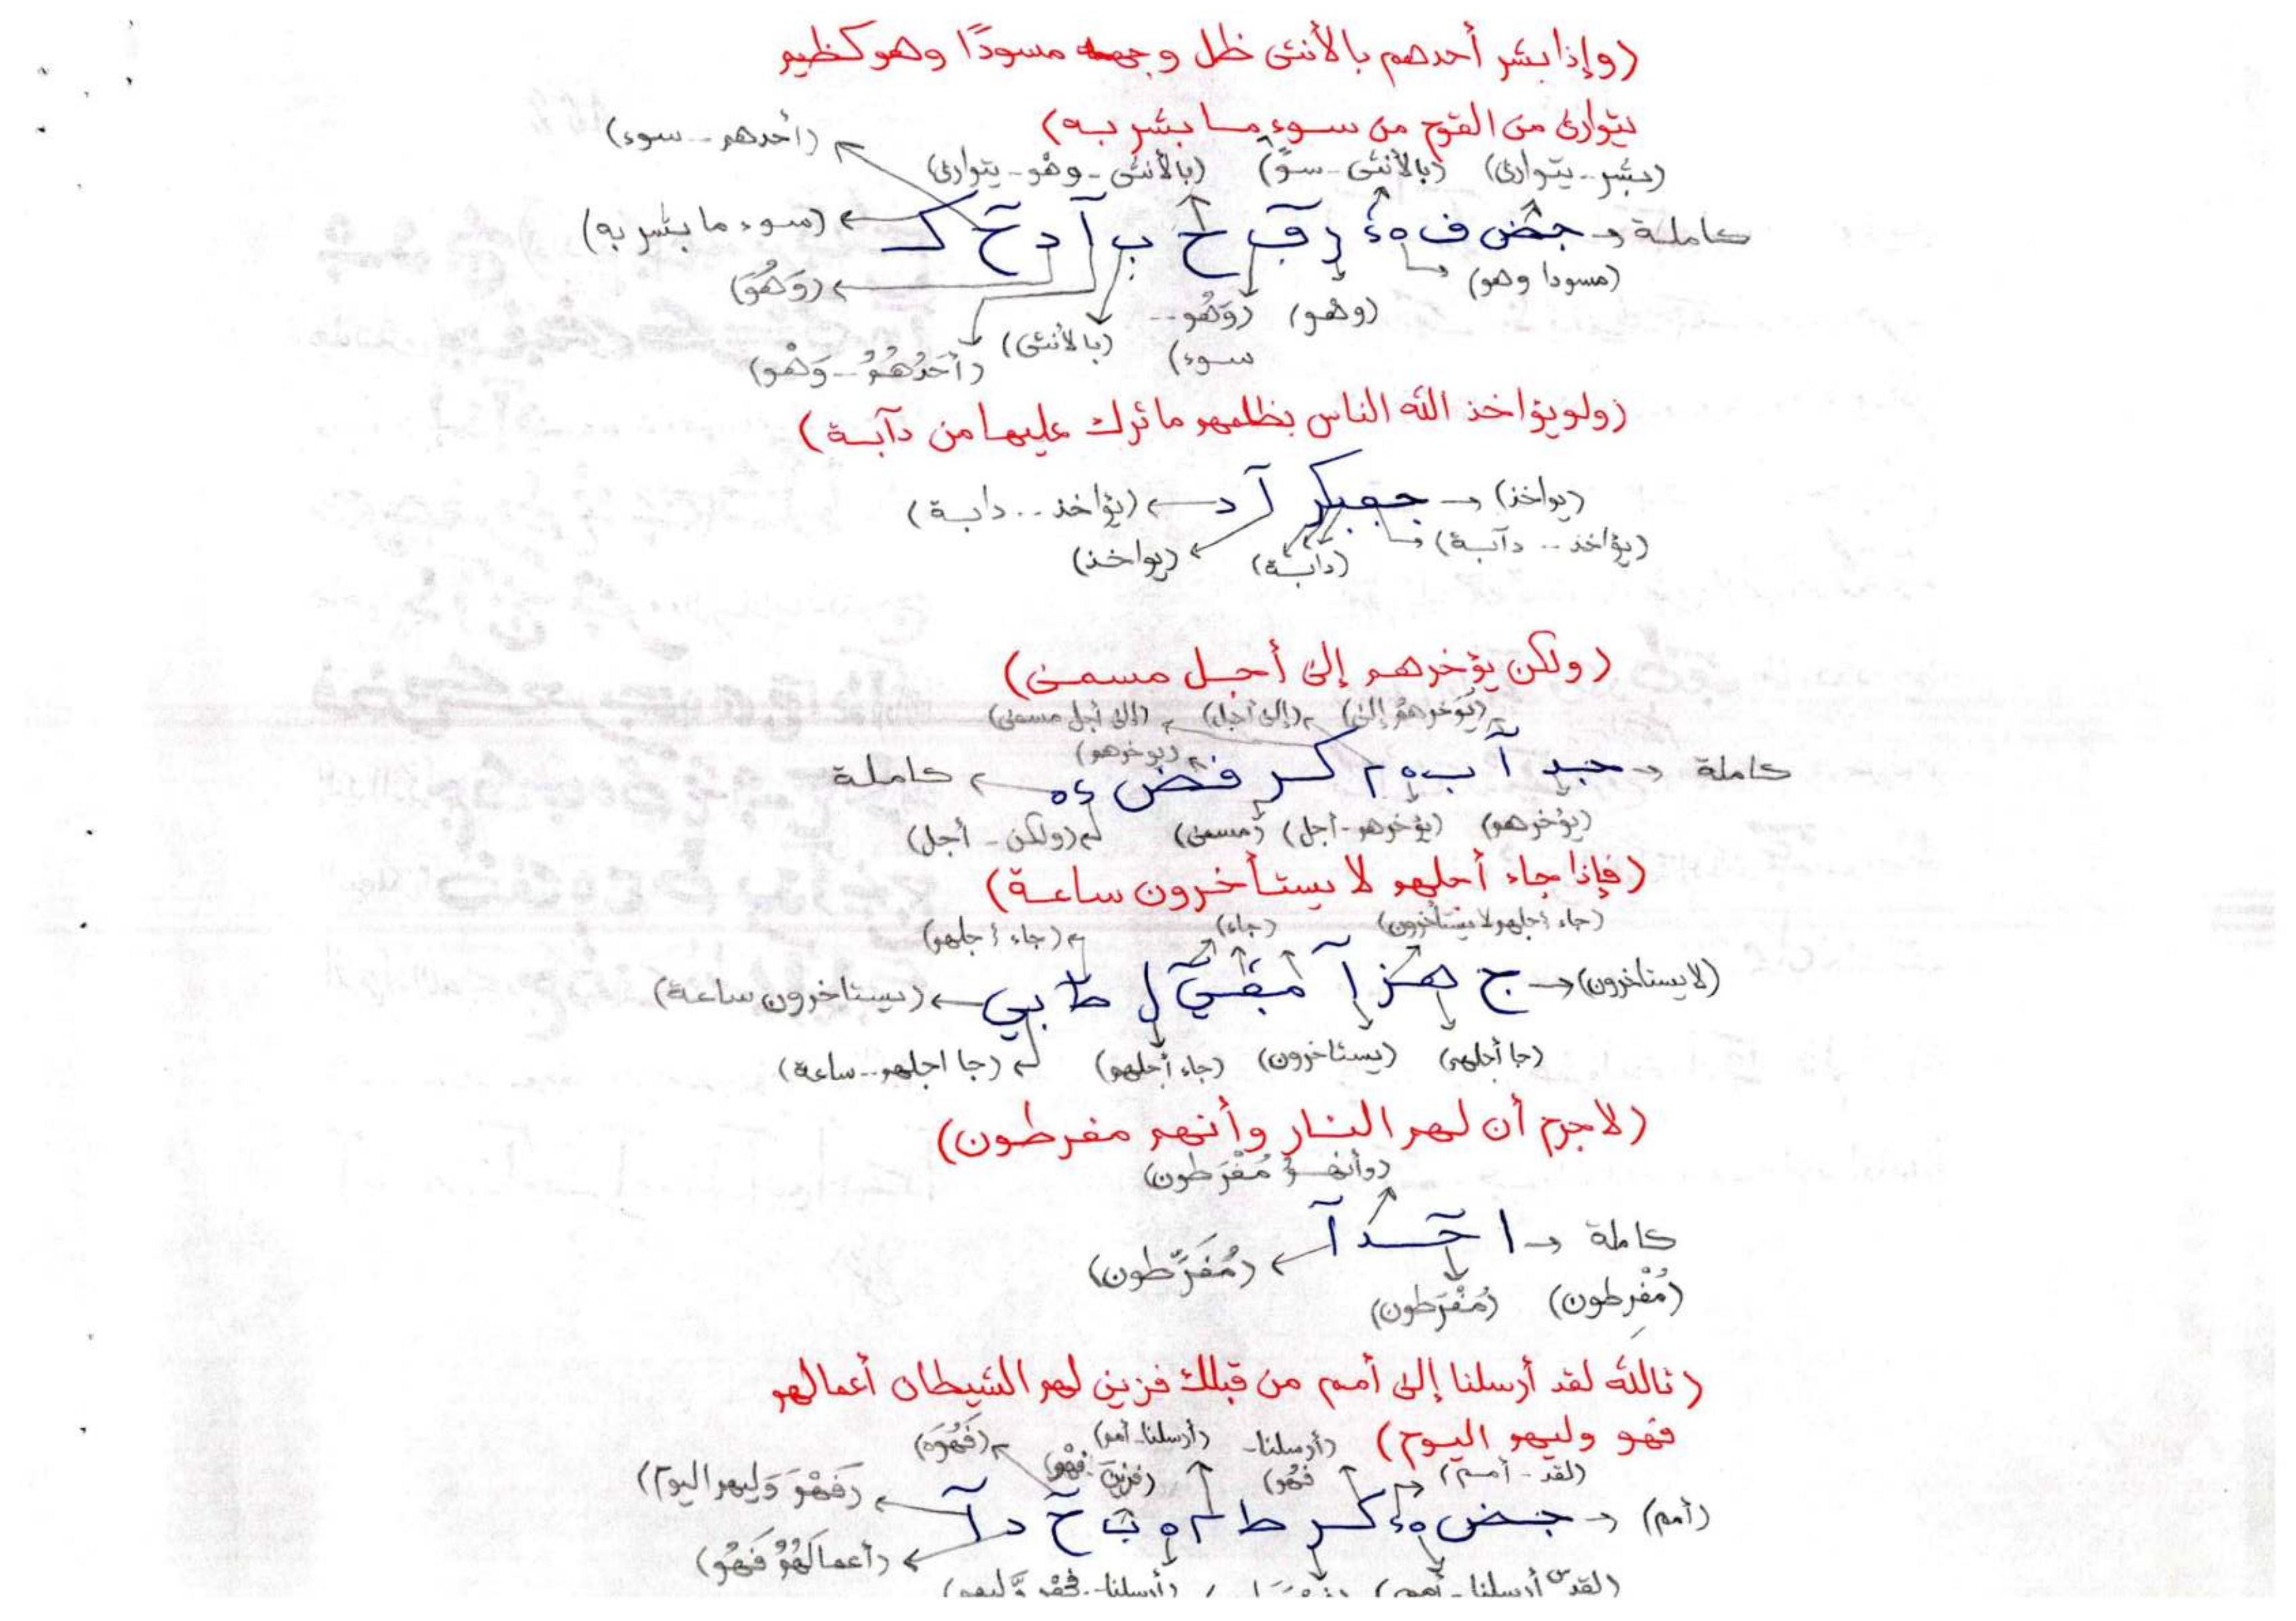 (وإذا بشر أحدهم بالأنثى ظل وجهه مسودًا وهو كظيم
يتوارى من القوم من سوء ما بشر به)
(أحدهم - سوء)
(بشر - يتوارى) (بالأنثى - سوءً) (بالأنثى - وهو - يتوارى)
كاملة → جض ف هء ر ق ح ب آ د خ ك ← (سوء ما بشر به)
(مسودا وهو) (وَهُوَ)
(وهو) (وَهُو --
سوء) (بالأنثى) (أَحَدُهُمُ - وَهْو)
(ولو يؤاخذ الله الناس بظلمهم ما ترك عليها من دآبة)
(يواخذ) → جعبكر آ د ← (يؤاخذ .. دابة)
(يؤاخذ .. دآبة) (دابة) (يواخذ)
(ولكن يؤخرهم إلى أجل مسمى)
(يؤخرهمُ إلى) (إلى أجل) (إلى أجل مسمى)
(يوخرهم)
كاملة → جبد آ ب ه م كر فض ءه ← كاملة
(يؤخرهم) (يؤخرهم - أجل) (مسمى) (ولكن - أجل)
(فإذا جاء أجلهم لا يستأخرون ساعة)
(جاء أجلهم لا يستأخرون) (جاء) (جاء أجلهم)
(لا يستاخرون) → ج هز آ ل ط بي ← (يستاخرون ساعة)
(جا أجلهم) (يستاخرون) (جاء أجلهم) (جا اجلهم - ساعة)
(لا جرم أن لهم النار وأنهم مفرطون)
(وأنهمُ مُفْرَطون)
كاملة → ا خ د آ ← (مُفَرِّطون)
(مُفْرِطون) (مُفْرَطون)
(تالله لقد أرسلنا إلى أمم من قبلك فزين لهم الشيطان أعمالهم
فهو وليهم اليوم) (أرسلنا - (أرسلنا - أمم) (فَهُوَه)
(لقد - أمم) فهُو) (فزين فهْو) (فَهْوَ وَليهم اليوم)
(أمم) → جض هء كر ط م ه ث خ د آ
(أعمالَهُمُ فَهُو)
(لقد أرسلنا - أمم) (أرسلنا - فهْو وَّليهم)